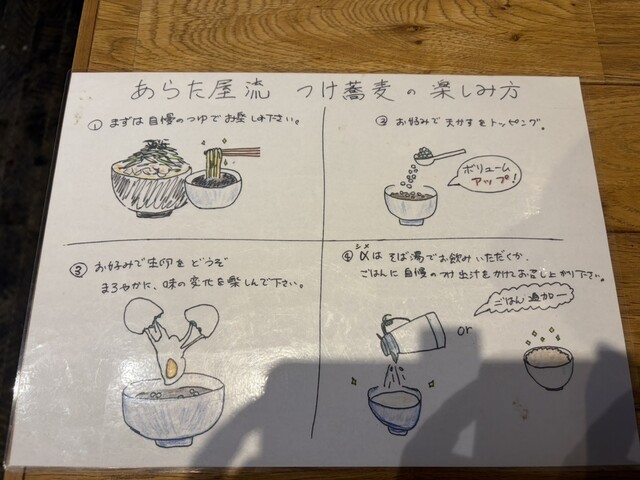 あらた屋流 つけ蕎麦の楽しみ方
① まずは自慢のつゆでお楽しみ下さい。
② お好みで天かすをトッピング。
ボリューム
アップ!
③ お好みで生卵をどうぞ
まろやかに、味の変化を楽しんで下さい。
シメ
④ 〆はそば湯でお飲みいただくか、
ごはんに自慢のつけ出汁をかけてお召し上がり下さい。
ごはん追加ー
or